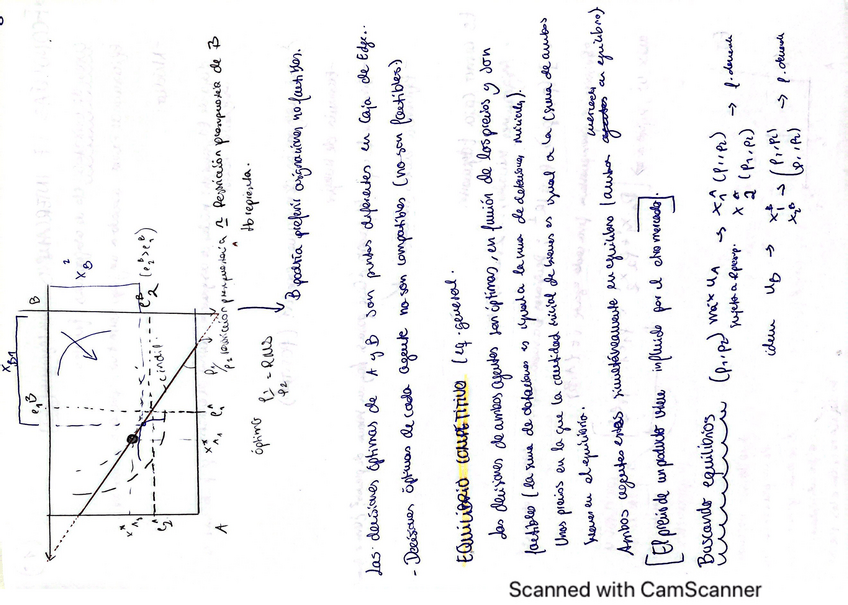 B
x²_B
X_B1
e₁^B
e₁^A
e₂^B
(e₂^B > e₁^B)
e₂^A
x*_A1
A
óptimo P₁/P₂ = RMS
restricción presupuestaria A
restricción presupuestaria de B
tb representa.
B podría preferir asignaciones no factibles.
Las decisiones óptimas de A y B son puntos diferentes en Caja de Edge..
- Decisiones óptimas de cada agente no son compatibles (no son factibles)
EQUILIBRIO COMPETITIVO (eq. general.
Las decisiones de ambos agentes son óptimas, en función de los precios y son
factibles (la suma de dotaciones es igual a la suma de dotaciones iniciales).
Unos precios en la que la cantidad inicial de bienes es igual a la (suma de ambos
bienes en el equilibrio.
Ambos agentes están simultáneamente en equilibrio (ambos mercados en equilibrio)
[El precio de un producto viene influido por el otro mercado.]
Buscando equilibrios (p₁,p₂) máx u_A → x₁^A (p₁,p₂)
sujeto a Rpresup. x₂^A (p₁,p₂) → f. demanda
idem u_B → x₁^B → (p₁,p₂)
x₂^B (p₁,p₂) → f. demanda
Scanned with CamScanner